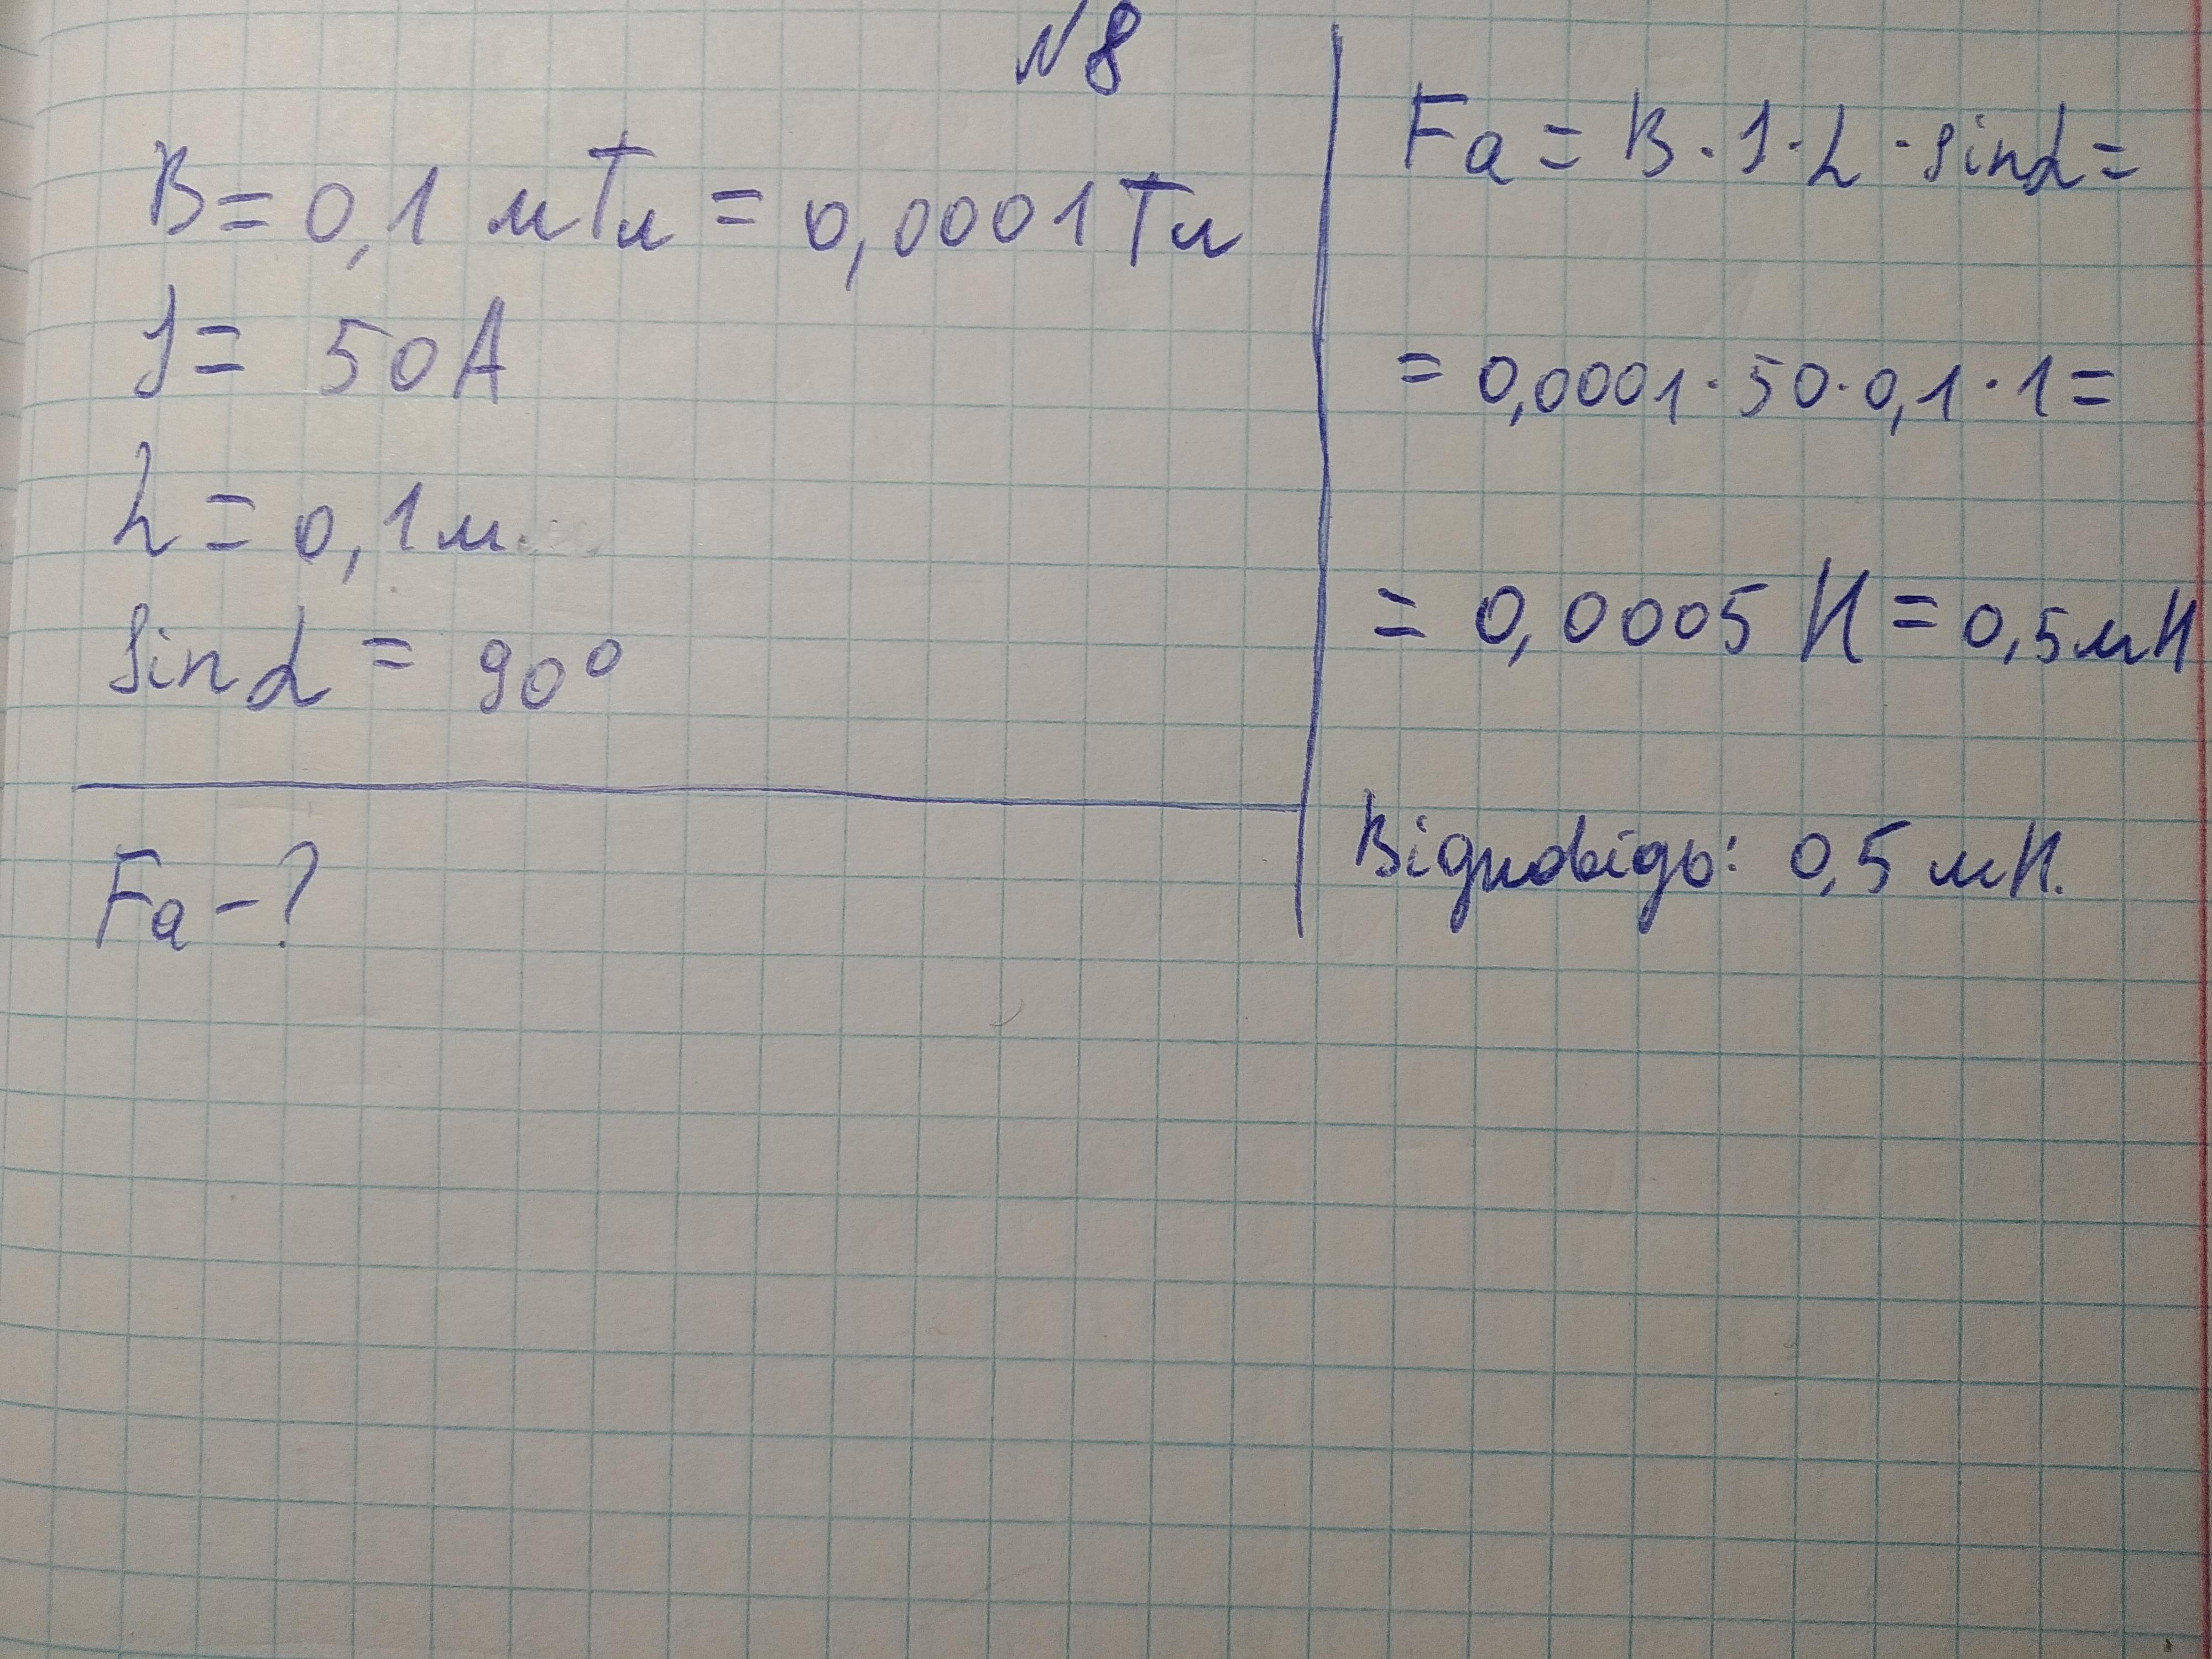 №8
B = 0,1 мТл = 0,0001 Тл
I = 50 А
L = 0,1 м
sin α = 90°
Fa - ?
Fa = B · I · L · sin α =
= 0,0001 · 50 · 0,1 · 1 =
= 0,0005 Н = 0,5 мН
Відповідь: 0,5 мН.